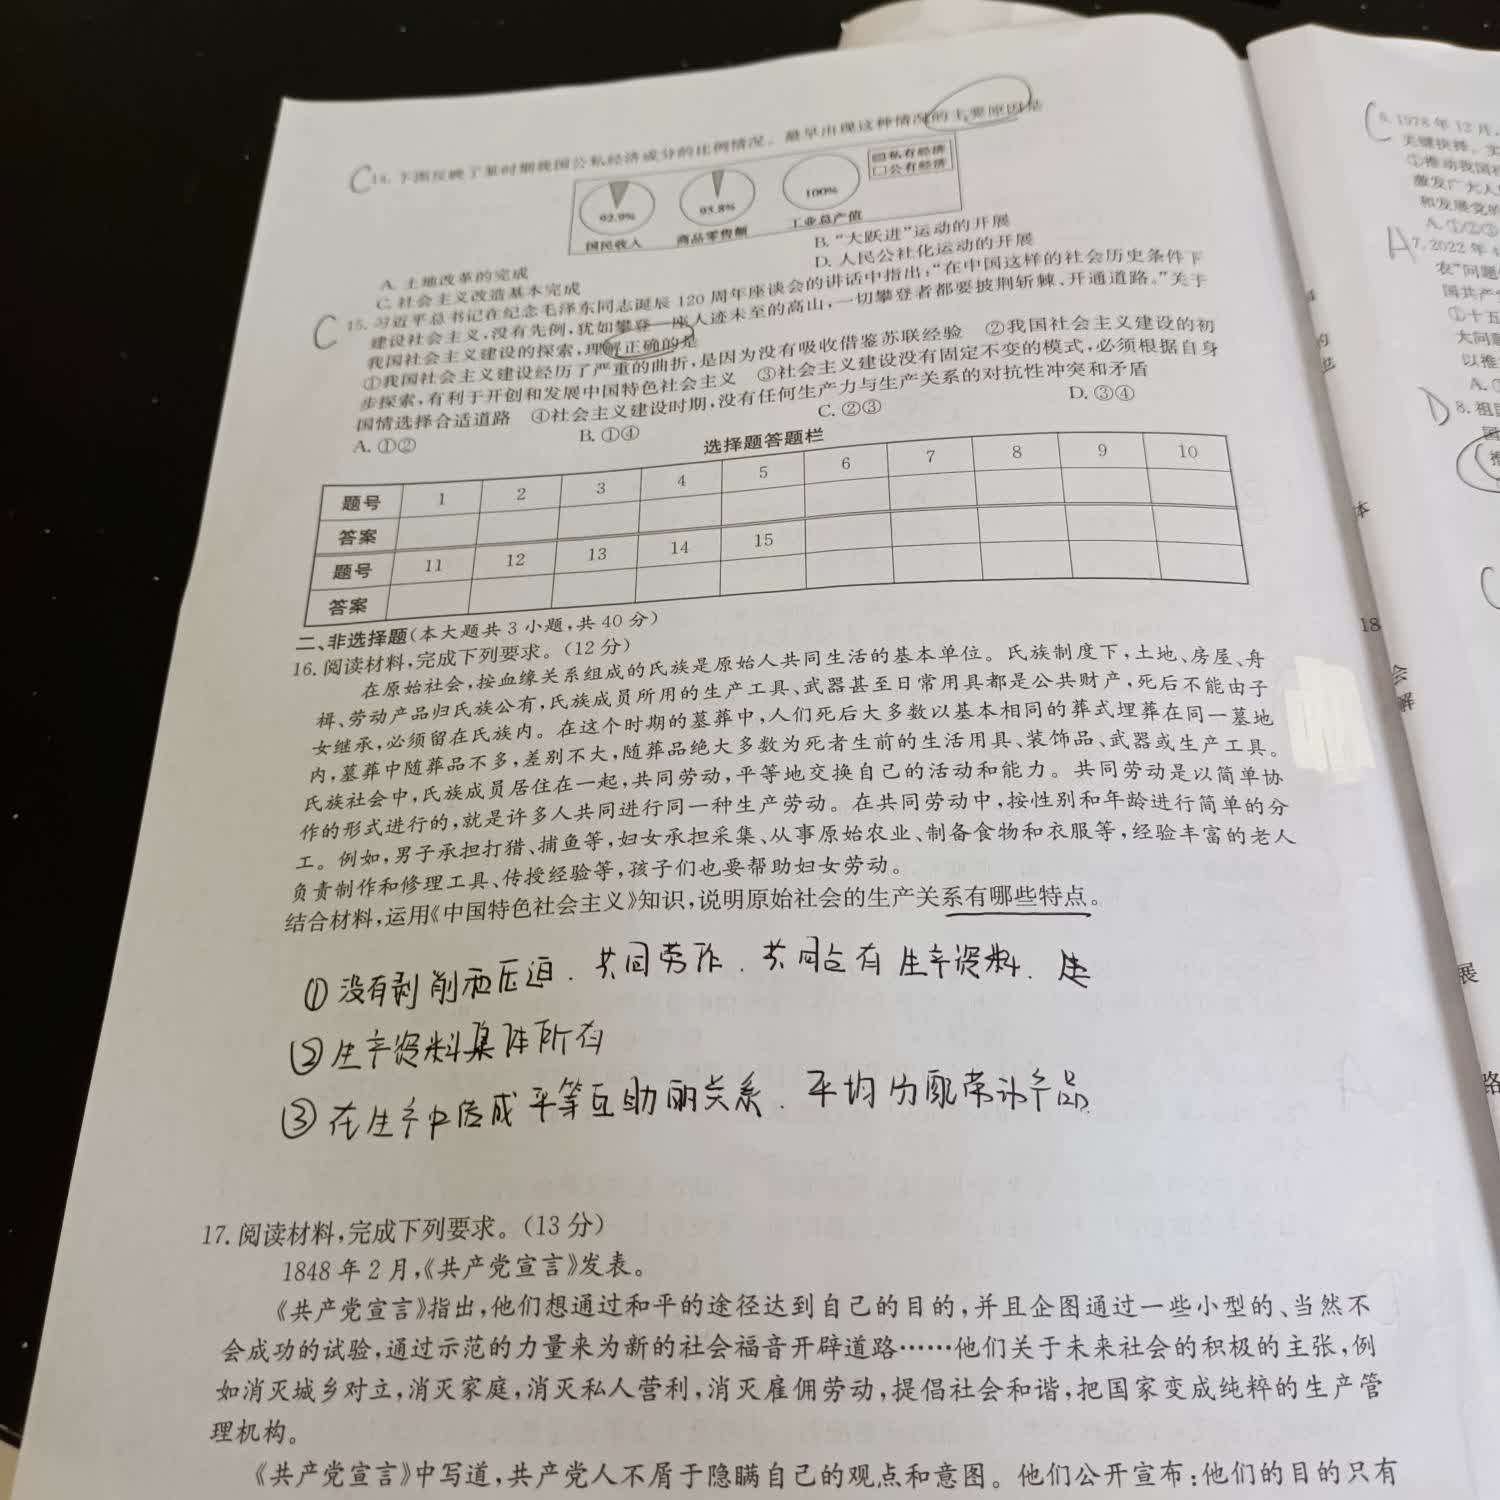 C14. 下图反映了某时期我国公私经济成分的比例情况。最早出现这种情况的主要原因是
92.9% 93.8% 100% 私有经济
公有经济
国民收入 商品零售额 工业总产值
A. 土地改革的完成 B. “大跃进”运动的开展
C. 社会主义改造基本完成 D. 人民公社化运动的开展
C 15. 习近平总书记在纪念毛泽东同志诞辰 120 周年座谈会的讲话中指出:“在中国这样的社会历史条件下
建设社会主义,没有先例,犹如攀登一座人迹未至的高山,一切攀登者都要披荆斩棘、开通道路。”关于
我国社会主义建设的探索,理解正确的是
①我国社会主义建设经历了严重的曲折,是因为没有吸收借鉴苏联经验 ②我国社会主义建设的初
步探索,有利于开创和发展中国特色社会主义 ③社会主义建设没有固定不变的模式,必须根据自身
国情选择合适道路 ④社会主义建设时期,没有任何生产力与生产关系的对抗性冲突和矛盾
A. ①② B. ①④ C. ②③ D. ③④
选择题答题栏
题号 1 2 3 4 5 6 7 8 9 10
答案
题号 11 12 13 14 15
答案
二、非选择题(本大题共 3 小题,共 40 分)
16. 阅读材料,完成下列要求。(12 分)
在原始社会,按血缘关系组成的氏族是原始人共同生活的基本单位。氏族制度下,土地、房屋、舟
楫、劳动产品归氏族公有,氏族成员所用的生产工具、武器甚至日常用具都是公共财产,死后不能由子
女继承,必须留在氏族内。在这个时期的墓葬中,人们死后大多数以基本相同的葬式埋葬在同一墓地
内,墓葬中随葬品不多,差别不大,随葬品绝大多数为死者生前的生活用具、装饰品、武器或生产工具。
氏族社会中,氏族成员居住在一起,共同劳动,平等地交换自己的活动和能力。共同劳动是以简单协
作的形式进行的,就是许多人共同进行同一种生产劳动。在共同劳动中,按性别和年龄进行简单的分
工。例如,男子承担打猎、捕鱼等,妇女承担采集、从事原始农业、制备食物和衣服等,经验丰富的老人
负责制作和修理工具、传授经验等,孩子们也要帮助妇女劳动。
结合材料,运用《中国特色社会主义》知识,说明原始社会的生产关系有哪些特点。
①没有剥削和压迫、共同劳作、共同占有生产资料、
②生产资料集体所有
③在生产中结成平等互助的关系、平均分配劳动产品
17. 阅读材料,完成下列要求。(13 分)
1848 年 2 月,《共产党宣言》发表。
《共产党宣言》指出,他们想通过和平的途径达到自己的目的,并且企图通过一些小型的、当然不
会成功的试验,通过示范的力量来为新的社会福音开辟道路……他们关于未来社会的积极的主张,例
如消灭城乡对立,消灭家庭,消灭私人营利,消灭雇佣劳动,提倡社会和谐,把国家变成纯粹的生产管
理机构。
《共产党宣言》中写道,共产党人不屑于隐瞒自己的观点和意图。他们公开宣布:他们的目的只有
C 6. 1978 年 12 月,
关键抉择。实
①推动我国
激发广大人
和发展党的
A. ①②③
A 7. 2022 年
农”问题
国共产
①十五
大问题
以推
A. ①
D 8. 祖国
国
推
本
18
会
解
展
路